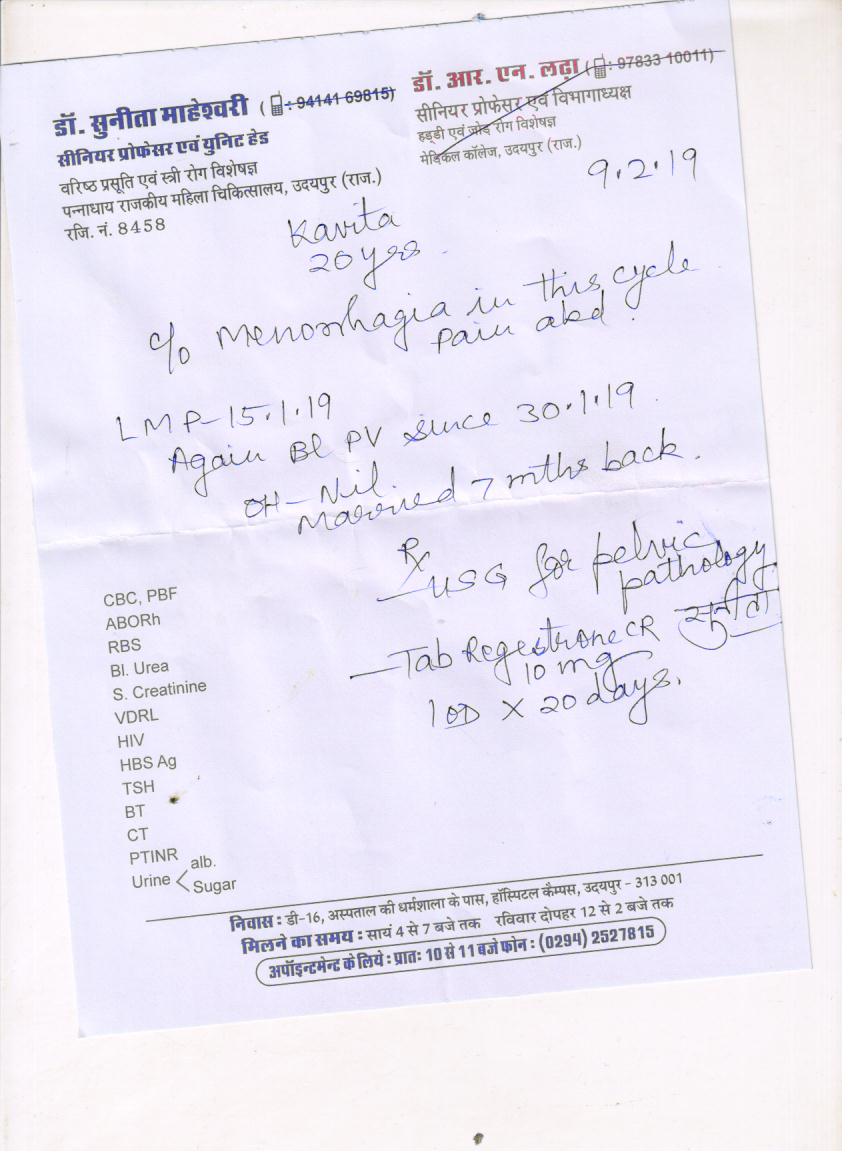 डॉ. सुनीता माहेश्वरी (: 94141 69815)
सीनियर प्रोफेसर एवं युनिट हेड
वरिष्ठ प्रसूति एवं स्त्री रोग विशेषज्ञ
पन्नाधाय राजकीय महिला चिकित्सालय, उदयपुर (राज.)
रजि. नं. 8458
डॉ. आर. एन. लढ़ा (: 97833 10011)
सीनियर प्रोफेसर एवं विभागाध्यक्ष
हड्डी एवं जोड़ रोग विशेषज्ञ
मेडिकल कॉलेज, उदयपुर (राज.)
9.2.19
Kavita
20 yrs
c/o Menorrhagia in this cycle
pain abd.
LMP-15.1.19
Again Bl PV since 30.1.19
OH-Nil.
Married 7 mths back.
Rx
- USG for pelvic
pathology
सुनीता
- Tab Regestrone CR
10 mg
1 OD X 20 days.
CBC, PBF
ABORh
RBS
Bl. Urea
S. Creatinine
VDRL
HIV
HBS Ag
TSH
BT
CT
PTINR
Urine < alb.
Sugar
निवास : डी-16, अस्पताल की धर्मशाला के पास, हॉस्पिटल कैम्पस, उदयपुर - 313 001
मिलने का समय : सायं 4 से 7 बजे तक रविवार दोपहर 12 से 2 बजे तक
अपॉइन्टमेन्ट के लिये : प्रातः 10 से 11 बजे फोन : (0294) 2527815